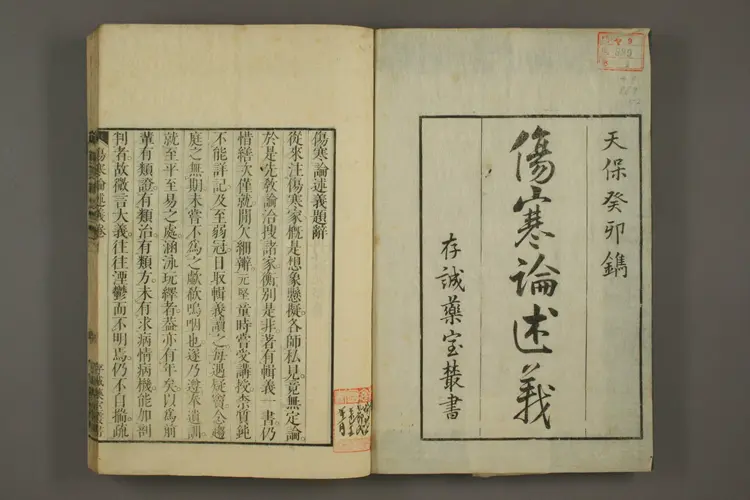 天保癸卯鐫
傷寒論述義
存誠藥室叢書
傷寒論述義題辭
從來注傷寒家概是想象懸擬各師私見竟無定論
於是先教諭洽搜諸家衡別是非著有輯義一書仍
惜繕次僅就閒欠細辨元堅童時嘗受講授柰質鈍
不能詳記及至弱冠日取輯義讀之每遇疑竇念趨
庭之無期未嘗不為之歔欷嗚咽也遂乃遵奉遺訓
就至平至易之處涵泳玩繹者蓋亦有年矣以為前
輩有類證有類治有類方未有求病情病機能加剖
判者故微言大義往往湮鬱而不明焉仍不自揣疏
傷寒論述義卷
存誠藥室叢書